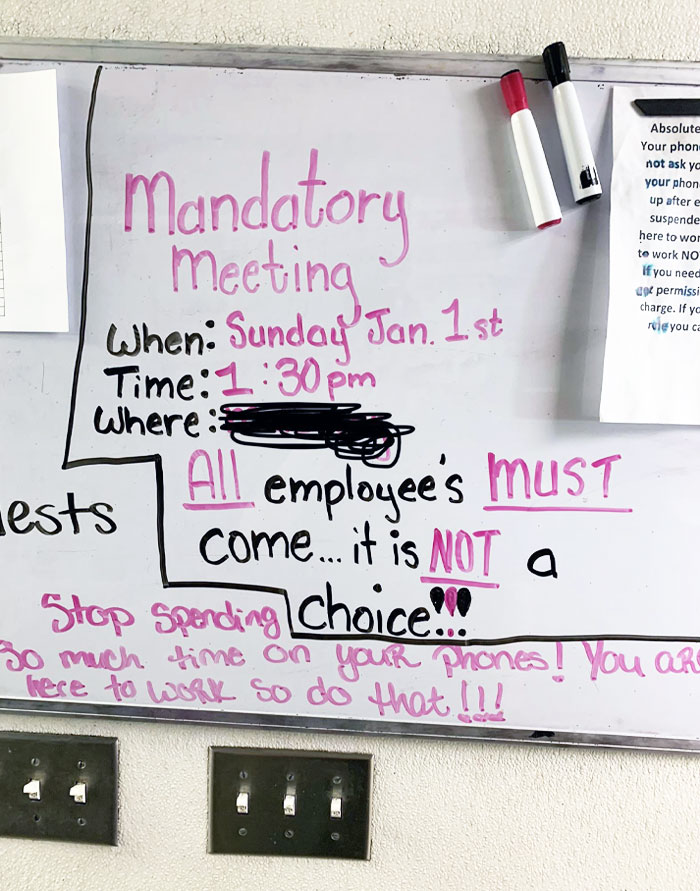 Mandatory
Meeting
When: Sunday Jan. 1st
Time: 1:30pm
Where:
All employee's MUST
come... it is NOT a
choice!!!
ests
Stop spending
So much time on your phones! You are
here to work so do that!!!
Absolute
Your phon
not ask yo
your phon
up after e
suspende
here to wor
to work NO
If you need
permissi
charge. If yo
rule you ca